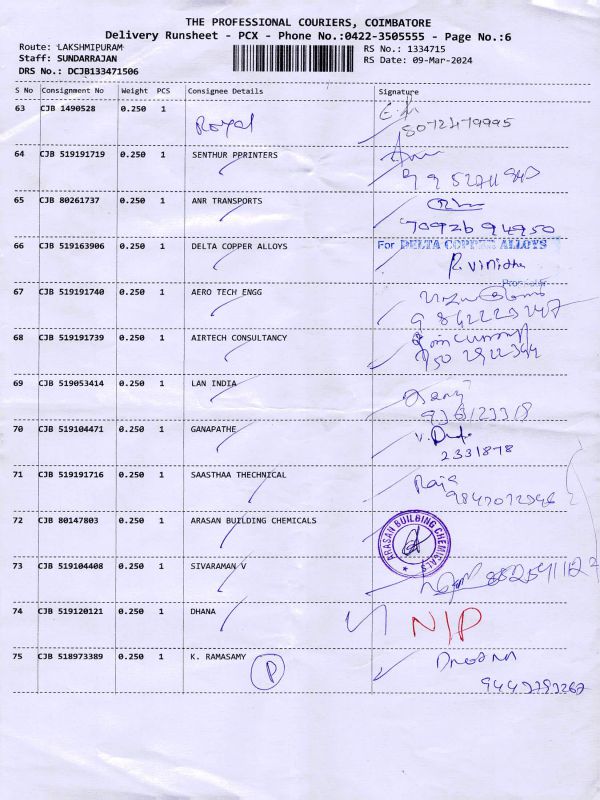 THE PROFESSIONAL COURIERS, COIMBATORE
Delivery Runsheet - PCX - Phone No.:0422-3505555 - Page No.:6
Route: LAKSHMIPURAM RS No.: 1334715
Staff: SUNDARRAJAN RS Date: 09-Mar-2024
DRS No.: DCJB133471506
S No Consignment No Weight PCS Consignee Details Signature
63 CJB 1490528 0.250 1 Royal
8072479995
64 CJB 519191719 0.250 1 SENTHUR PPRINTERS
65 CJB 80261737 0.250 1 ANR TRANSPORTS
70926 94950
66 CJB 519163906 0.250 1 DELTA COPPER ALLOYS For DELTA COPPER ALLOYS
R. Vinitha
67 CJB 519191740 0.250 1 AERO TECH ENGG
68 CJB 519191739 0.250 1 AIRTECH CONSULTANCY
69 CJB 519053414 0.250 1 LAN INDIA
70 CJB 519104471 0.250 1 GANAPATHE
2331878
71 CJB 519191716 0.250 1 SAASTHAA THECHNICAL Raja
72 CJB 80147803 0.250 1 ARASAN BUILDING CHEMICALS ARASAN BUILDING CHEMICALS
73 CJB 519104408 0.250 1 SIVARAMAN V
74 CJB 519120121 0.250 1 DHANA N/P
75 CJB 518973389 0.250 1 K. RAMASAMY P